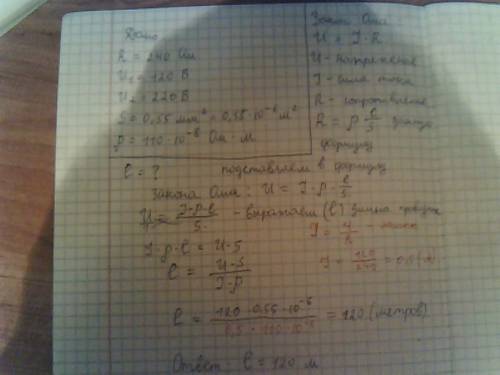 Дано
R = 240 Ом
U₁ = 120 В
U₂ = 220 В
S = 0,55 мм² = 0,55·10⁻⁶ м²
ρ = 110·10⁻⁸ Ом·м
ℓ = ?
Закон Ома
U = I·R
U - напряжение
I - сила тока
R - сопротивление
R = ρ·ℓ/S
формулу
подставляем в формулу
закона Ома: U = I·ρ·ℓ/S
U = I·ρ·ℓ/S - выражаем (ℓ) длина
I·ρ·ℓ = U·S
ℓ = U·S/I·ρ
I = U/R
I = 120/240 = 0,5 (А)
ℓ = 120·0,55·10⁻⁶/0,5·110·10⁻⁸ = 120 (метров)
Ответ: ℓ = 120 м